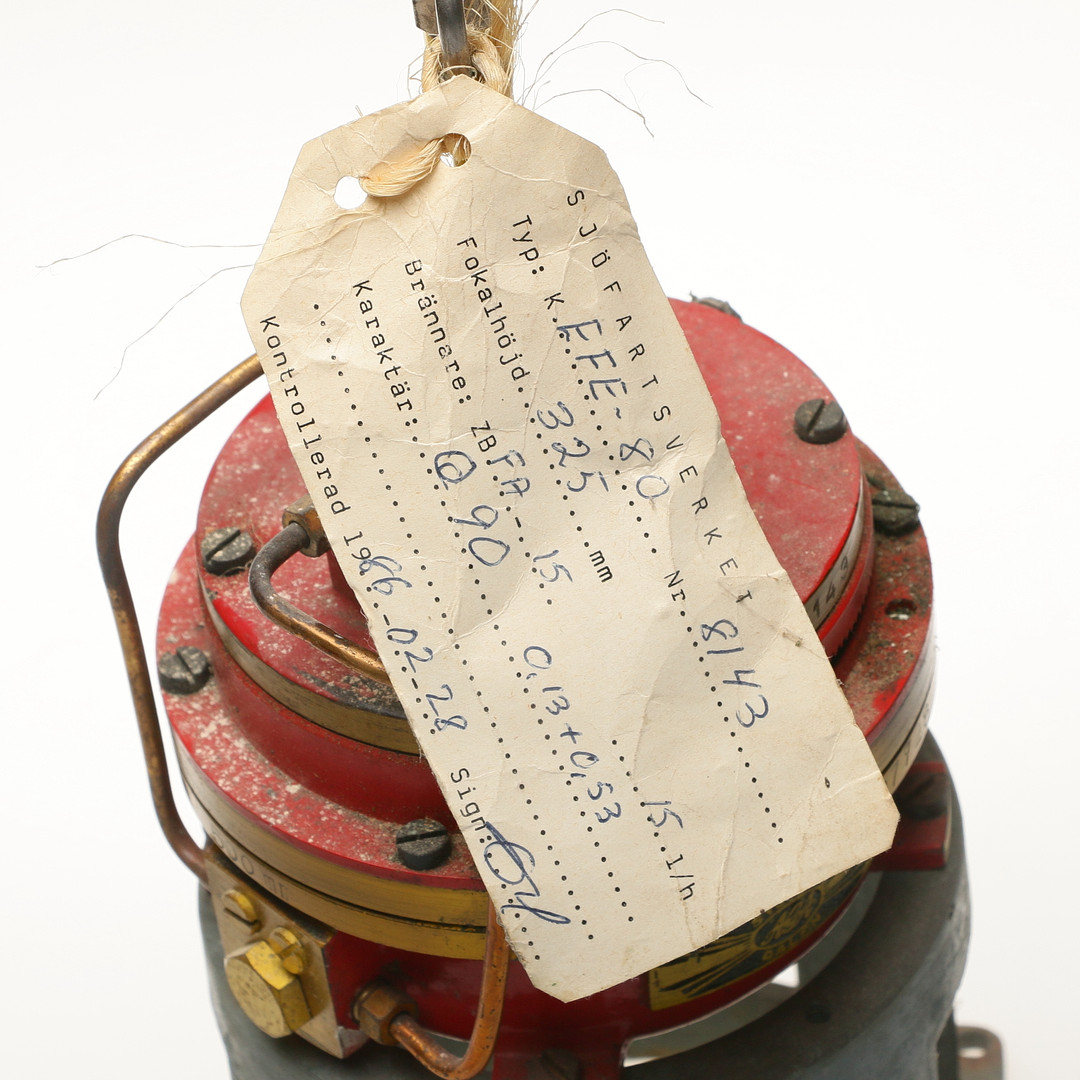 SJÖFARTSVERKET
Typ: K. EFE-80 Nr. 8143
Fokalhöjd. 325 mm
Brännare: ZBFA-15 15 l/h
Karaktär: Q 90 0,13+0,53
Kontrollerad 1986-02-28 Sign:
143